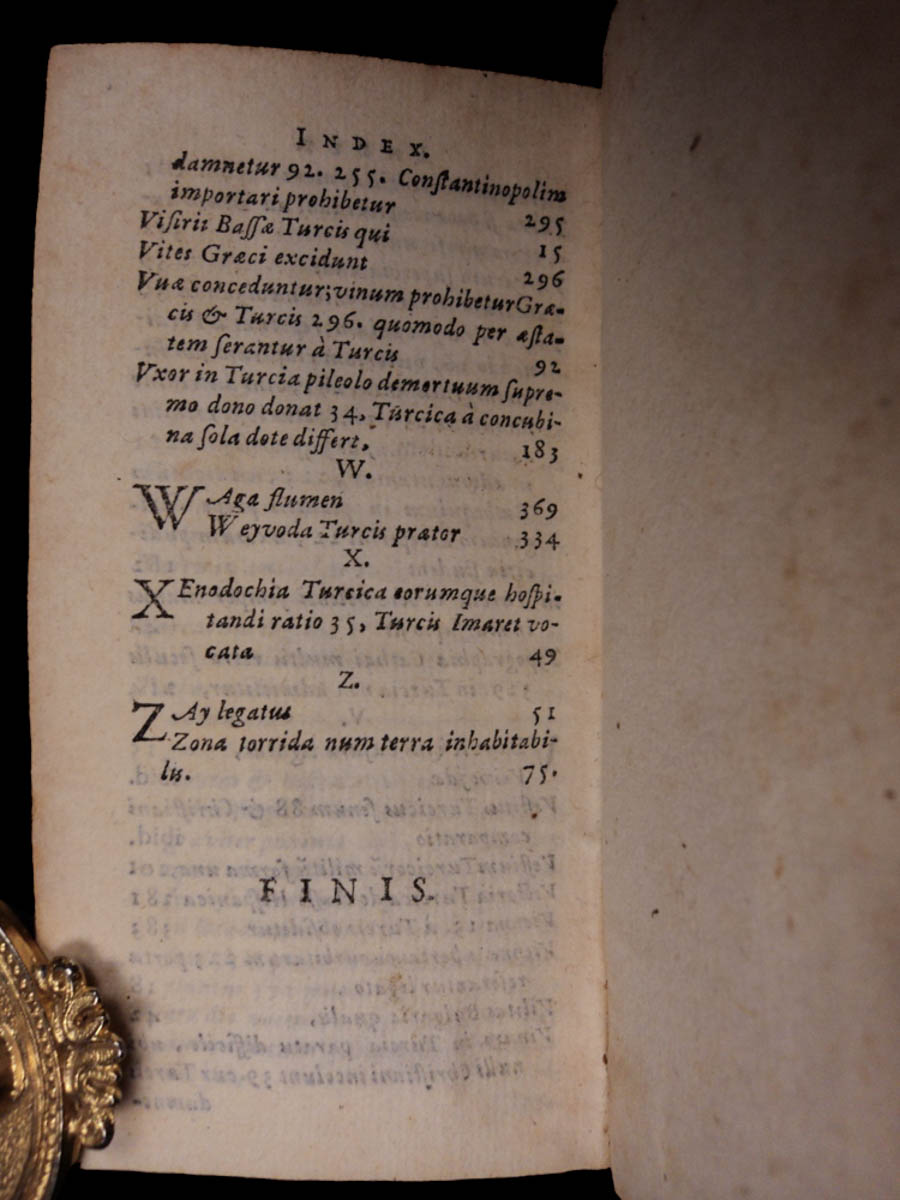 INDEX.
damnetur 92. 255. Conſtantinopolim
importari prohibetur 295
Viſiris Baſſæ Turcis qui 15
Vites Græci excidunt 296
Vuæ conceduntur; vinum prohibetur Græ-
cis & Turcis 296. quomodo per æſta-
tem ſerantur à Turcis 92
Vxor in Turcia pileolo demortuum ſupre-
mo dono donat 34, Turcica à concubi-
na ſola dote differt, 183
W.
WAga flumen 369
Weyvoda Turcis prætor 334
X.
XEnodochia Turcica eorumque hoſpi-
tandi ratio 35, Turcis Imaret vo-
cata 49
Z.
ZAy legatus 51
Zona torrida num terra inhabitabi-
lis. 75.
FINIS.